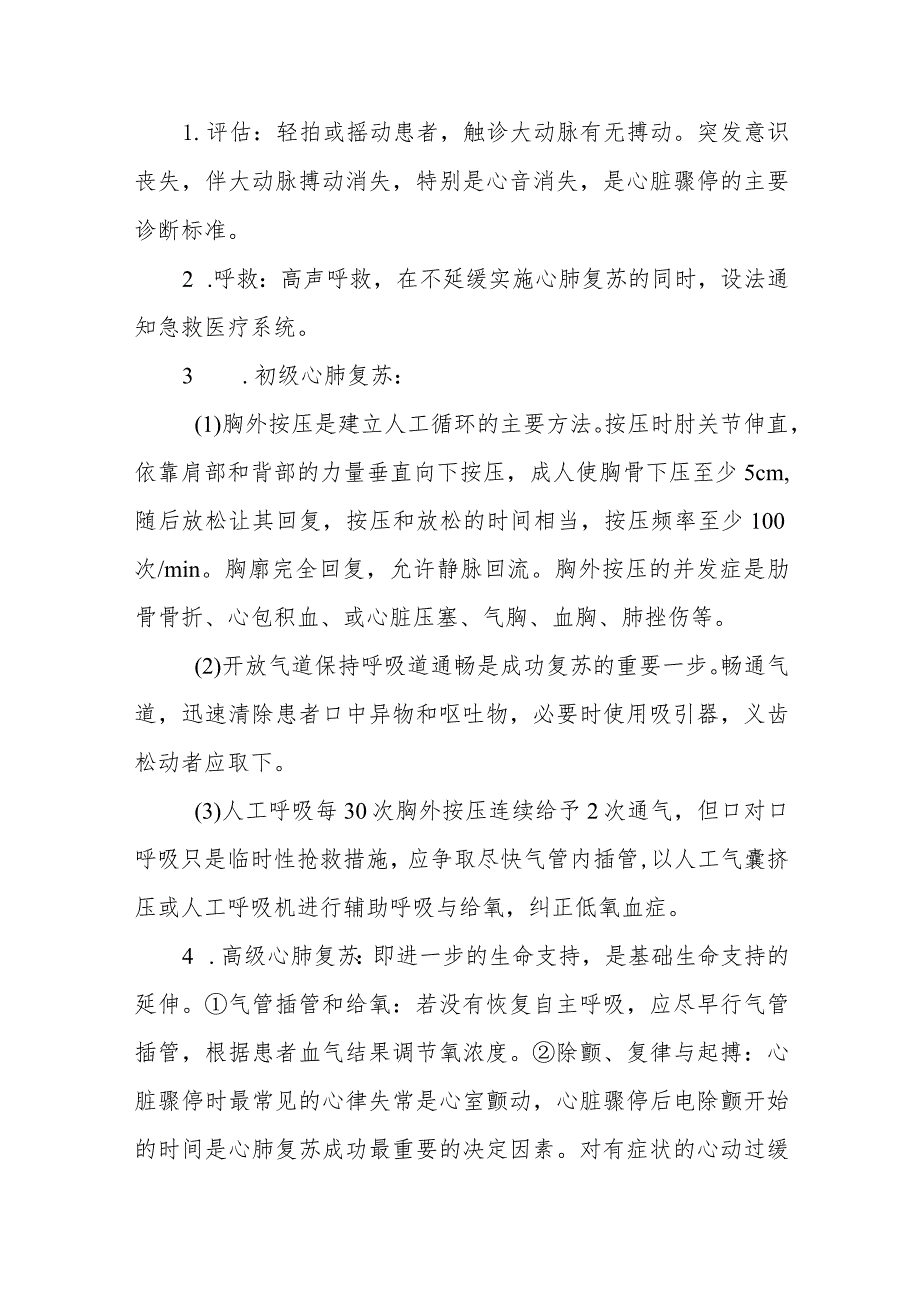 1. 评估：轻拍或摇动患者，触诊大动脉有无搏动。突发意识
丧失，伴大动脉搏动消失，特别是心音消失，是心脏骤停的主要
诊断标准。
2 .呼救：高声呼救，在不延缓实施心肺复苏的同时，设法通
知急救医疗系统。
3 .初级心肺复苏：
(1)胸外按压是建立人工循环的主要方法。按压时肘关节伸直，
依靠肩部和背部的力量垂直向下按压，成人使胸骨下压至少 5cm,
随后放松让其回复，按压和放松的时间相当，按压频率至少 100
次/min。胸廓完全回复，允许静脉回流。胸外按压的并发症是肋
骨骨折、心包积血、或心脏压塞、气胸、血胸、肺挫伤等。
(2)开放气道保持呼吸道通畅是成功复苏的重要一步。畅通气
道，迅速清除患者口中异物和呕吐物，必要时使用吸引器，义齿
松动者应取下。
(3)人工呼吸每 30 次胸外按压连续给予 2 次通气，但口对口
呼吸只是临时性抢救措施，应争取尽快气管内插管,以人工气囊挤
压或人工呼吸机进行辅助呼吸与给氧，纠正低氧血症。
4 .高级心肺复苏：即进一步的生命支持，是基础生命支持的
延伸。①气管插管和给氧：若没有恢复自主呼吸，应尽早行气管
插管，根据患者血气结果调节氧浓度。②除颤、复律与起搏：心
脏骤停时最常见的心律失常是心室颤动，心脏骤停后电除颤开始
的时间是心肺复苏成功最重要的决定因素。对有症状的心动过缓